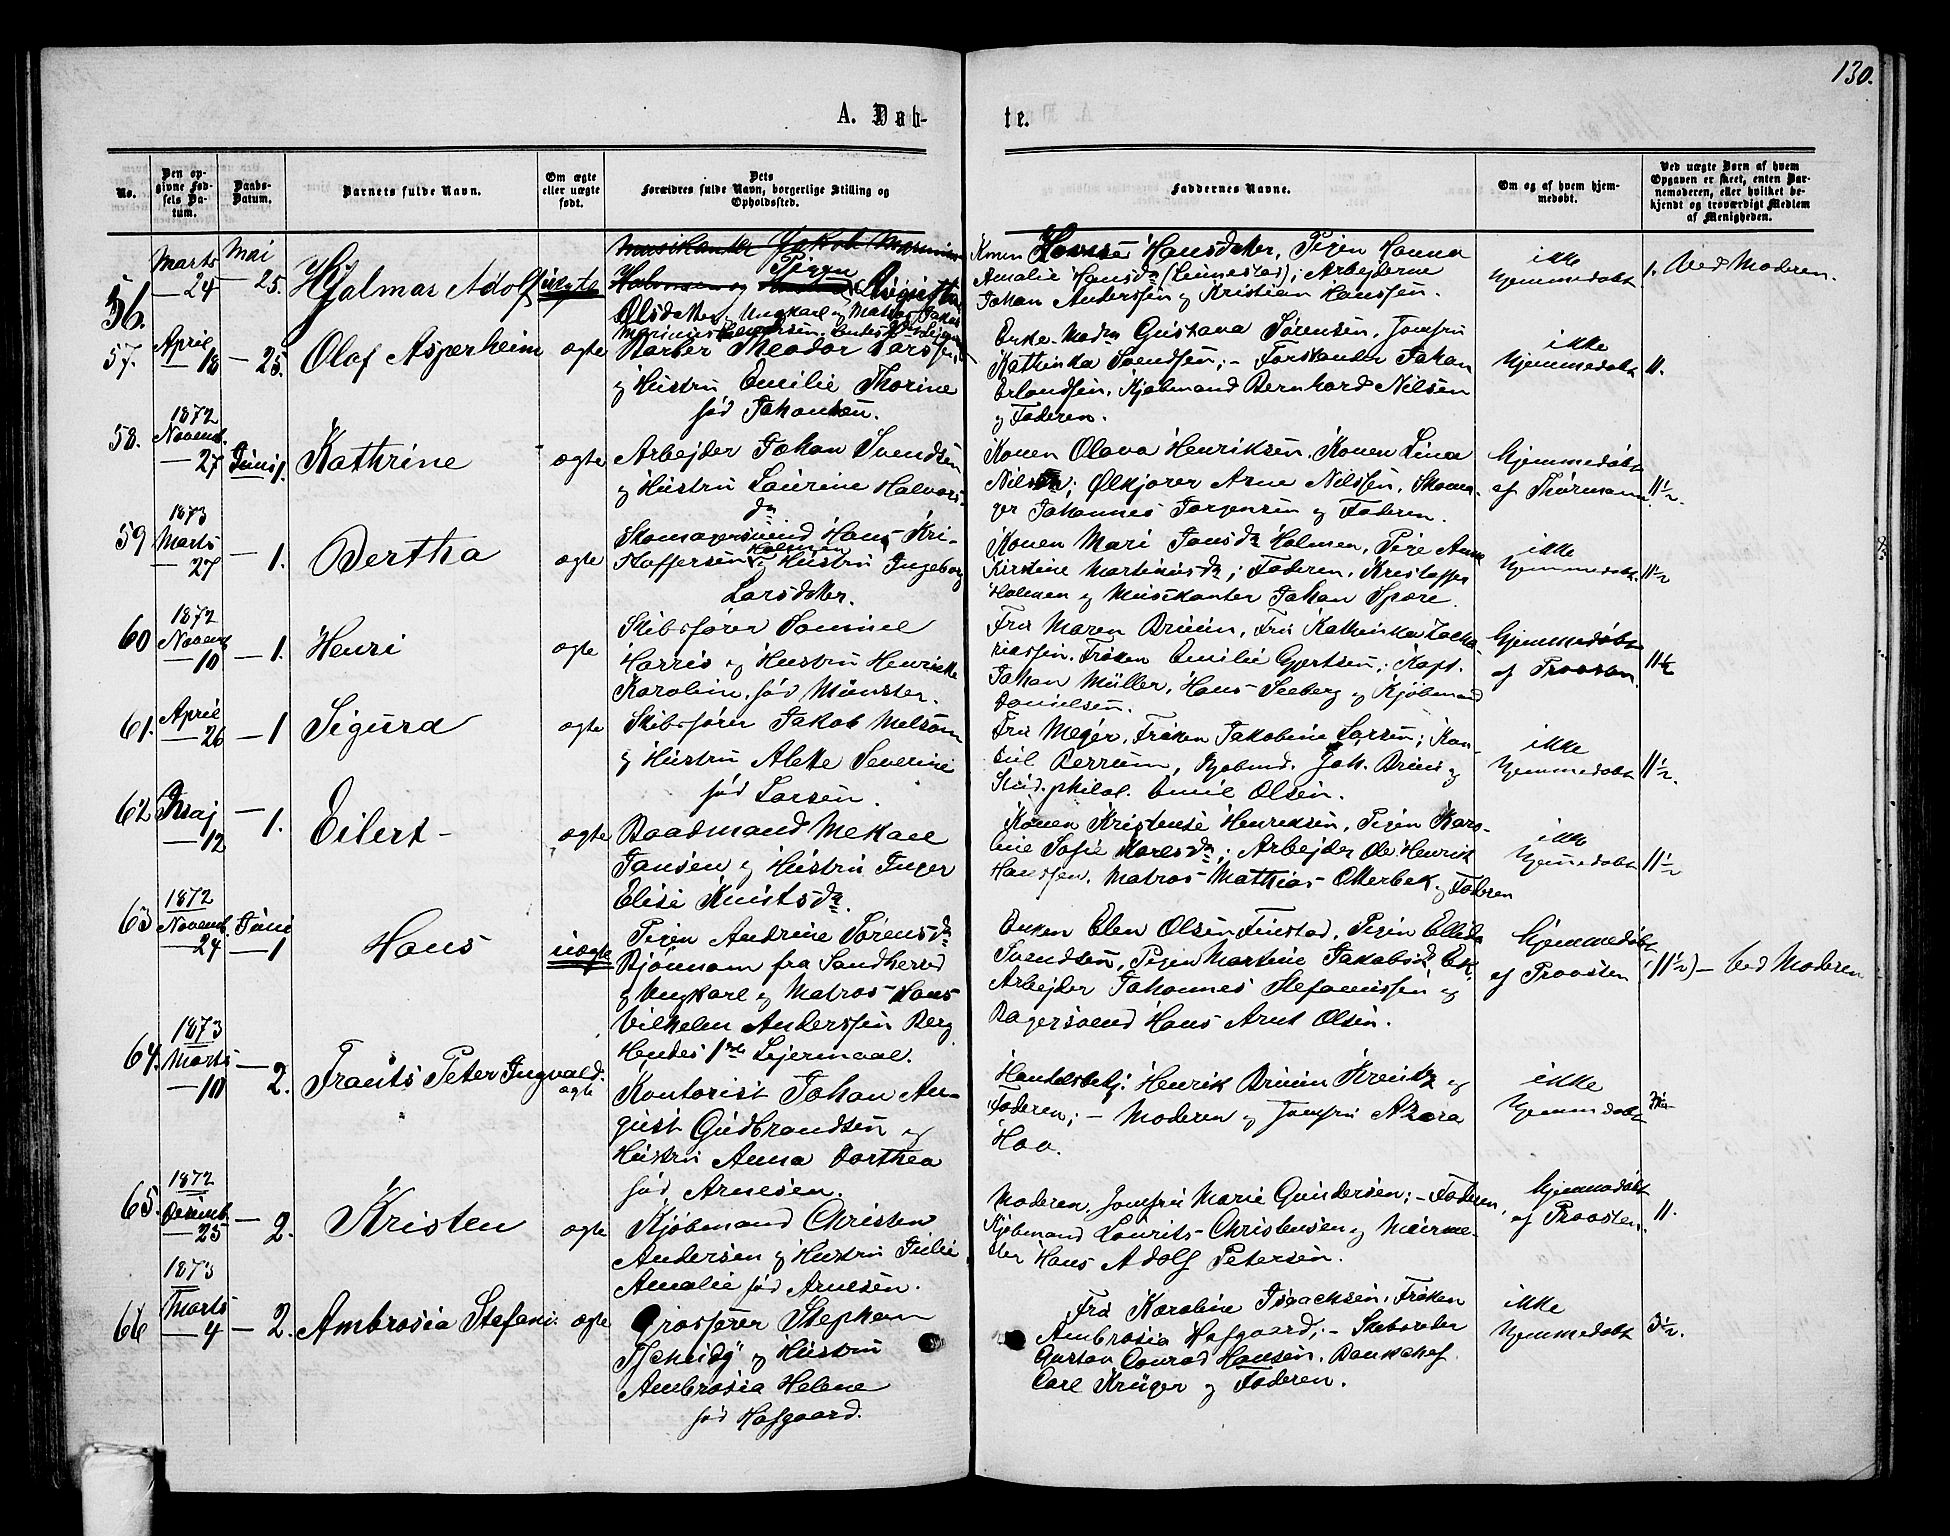 130.
A. Døb-
te.
No.
Den op-
givne Fød-
sels Da-
tum.
Daabs-
Datum.
Barnets fulde Navn.
Om ægte
eller uægte
født.
Dets
Forældres fulde Navn, borgerlige Stilling og
Opholdssted.
Faddernes Navne.
Om og af hvem hjem-
medøbt.
Ved uægte Børn af hvem
Opgaven er skeet, enten Bar-
nemoderen, eller hvilket be-
kjendt og troværdigt Medlem
af Menigheden.
56.
Marts
24
Mai
25.
Hjalmar Adolf
uægte
Musikanter Jakob
Pigen
Holmsen og Augusta
Olsdatter, Ungkarl og Matros Jakob
Konen Hansdatter, Pigen Hanna
Amalie Hansdr (Lennestad); Arbejderne
Johan Anderssen og Kristian Hanssen.
ikke
hjemmedøbt
1. Ved Moderen.
57.
April
18
— 25.
Olaf Asperheim
ægte
Barber Theodor Larssen
og Hustru Emilie Thorine
fød Johansen.
Enke-Mad. Gustava Sørensen, Jomfru
Kathinka Svendsen; – Forstander Johan
Erlandsen, Kjøbmand Bernhard Nilsen
og Faderen.
ikke
hjemmedøbt
11.
58.
1872
Novemb.
— 27
Juni 1.
Kathrine
ægte
Arbejder Johan Svendsen
og Hustru Laurine Halvors-
dr
Konen Olava Henriksen, Konen Lina
Nilsdr; Ølkjører Arne Nilssen, Skoma-
ger Johannes Jørgensen og Faderen.
hjemmedøbt
af Thormann
11½.
59
1873
Marts
— 27
— 1.
Bertha
ægte
Skomagersvend Hans Kri-
stoffersen Holmen og Hustru Ingeborg
Larsdatter.
Konen Mari Jonsdr Holmen, Pige Anne
Kirstine Martiniusdr; Faderen, Kristoffer
Holmen og Musikanter Johan Spore.
ikke
hjemmedøbt.
11½
60
1872
Novemb
— 10
— 1.
Henri
ægte
Skibsfører Samuel
Harris og Hustru Henriette
Karolin. fød Münster.
Fru Maren Bruun, Fru Kathinka Zacha-
riassen. Frøken Emilie Gjertsen; Kapt.
Johan Müller, Hans Seeberg og Kjøbmand
Danielsen.
hjemmedøbt
af Provsten.
11½
61.
April
— 26
— 1
Sigurd
ægte
Skibsfører Jakob Melsom
og Hustru Alette Severine
fød Larsen.
Fru Meyer, Frøken Jakobine Larsen; Kon-
sul Berrum, Kjøbmd. Joh. Bruun og
Stud. philol. Emil Olsen.
ikke
hjemmedøbt
11½.
62
Maj
— 12
— 1.
Eilert
ægte
Baadmand Mekael
Jansen og Hustru Inger
Elise Knutsdr.
Konen Kristense Henriksen, Pigen Karo-
line Sofie Karlsdr; Arbejder Ole Henrik
Hanssen, Matros Mathias Otterbek og Faderen
ikke
hjemmedøbt
11½
63
1872
Novemb.
— 24
Juni
— 1
Hans
uægte
Pigen Andrine Sørensdr
Bjønnom fra Sandherred
og Ungkarl og Matros Hans
Vilhelm Anderssen Berg.
Hendes 1ste Lejermaal.
Enken Elen Olsen Finstad, Pigen Ellida
Svendsen, Pigen Martine Jakobsdr Ek.
Arbejder Johannes Stefanussen og
Bagersvend Hans Arnt Olsen.
hjemmedøbt
af Provsten
(11½) – Ved Moderen
64.
1873
Marts
— 10
— 2.
Frants Peter Ingvald.
ægte
Kontorist Johan Au-
gust Gudbrandsen og
Hustru Anna Dorthea
fød Arnesen.
Handelsbetj. Henrik Bruun Kreutz og
Faderen; – Moderen og Jomfru Azora
Hoo.
ikke
hjemmedøbt
65.
1872
Decemb.
— 25
— 2.
Kristen
ægte
Kjøbmand Christen
Andersen og Hustru Julie
Amalie fød Arnesen.
Moderen, Jomfru Marie Gundersen; – Faderen,
Kjøbmand Laurits Christensen og Murme-
ster Hans Adolf Petersen.
hjemmedøbt
af Provsten.
11.
66
1873
Marts
— 4
— 2.
Ambrosia Stefani.
ægte
Grosserer Stephan
Tscheidy og Hustru
Ambrosia Helene
fød Hofgaard.
Fru Karoline Isachsen, Frøken
Ambrosia Hofgaard; – Skibsreder
Gustav Conrad Hansen, Bankchef
Carl Krüger og Faderen.
ikke
hjemmedøbt
3½.